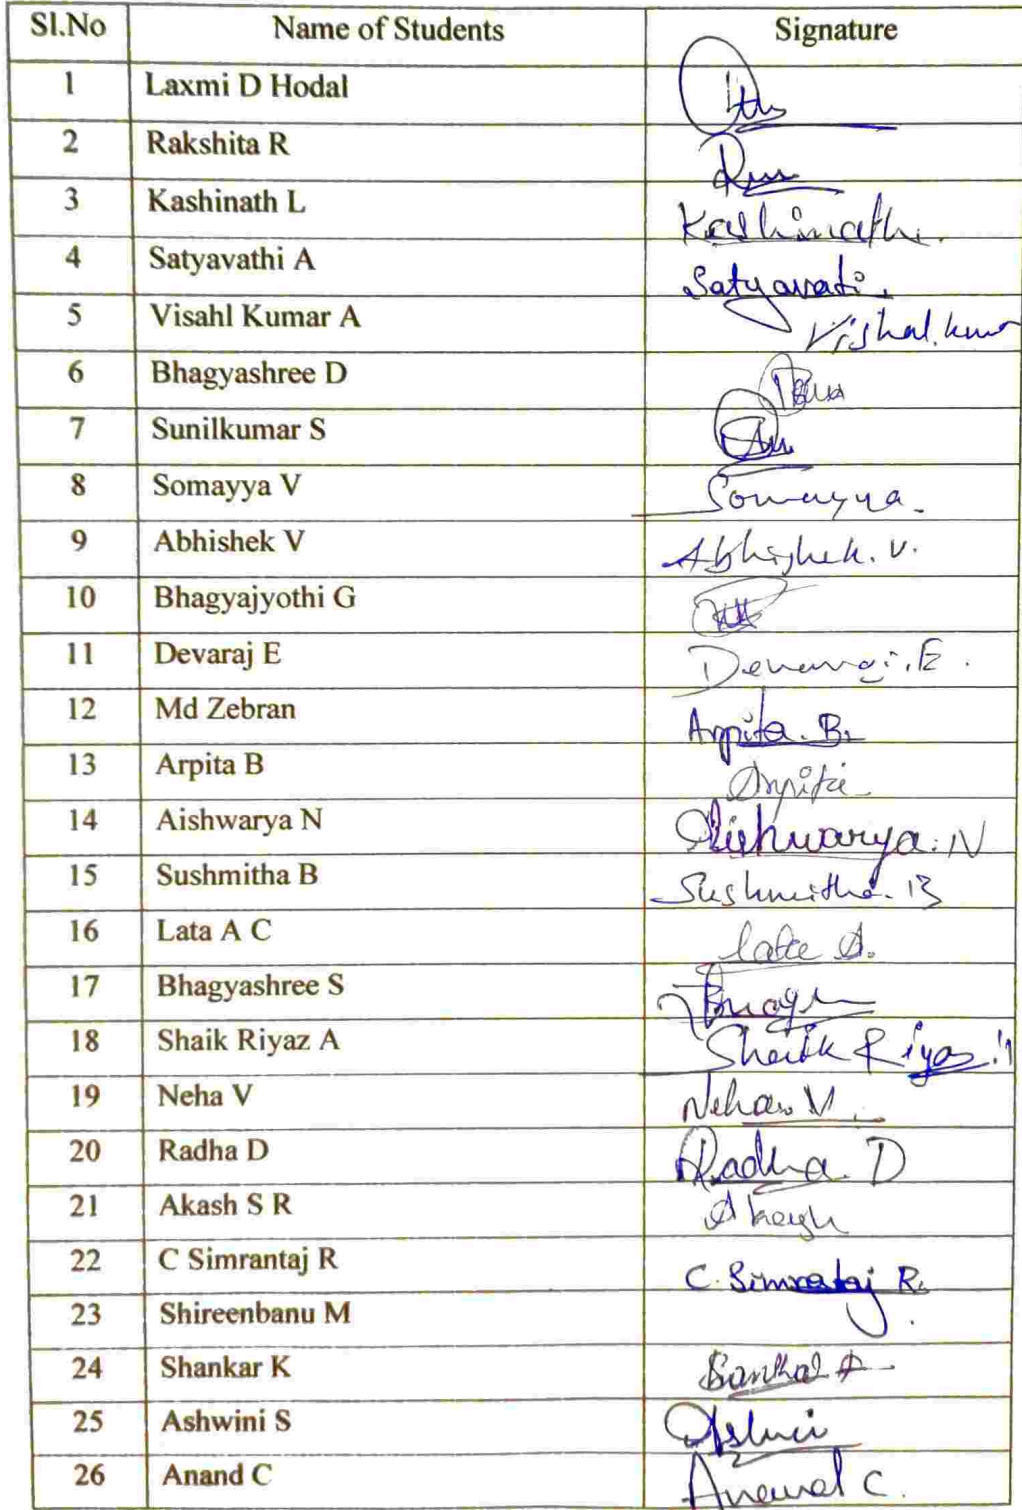 Sl.No Name of Students Signature
1 Laxmi D Hodal
2 Rakshita R
3 Kashinath L Kashinath.
4 Satyavathi A Satyavati.
5 Visahl Kumar A Vishal.kumar
6 Bhagyashree D
7 Sunilkumar S
8 Somayya V Somayya.
9 Abhishek V Abhishek. V.
10 Bhagyajyothi G
11 Devaraj E Devaraj.E.
12 Md Zebran Arpita. B.
13 Arpita B Arpita
14 Aishwarya N Aishwarya. N
15 Sushmitha B Sushmitha. B
16 Lata A C Lata A.
17 Bhagyashree S
18 Shaik Riyaz A Shaik Riyaz
19 Neha V Neha. V
20 Radha D Radha D
21 Akash S R Akash
22 C Simrantaj R C. Simrataj R.
23 Shireenbanu M
24 Shankar K
25 Ashwini S
26 Anand C Anand C.